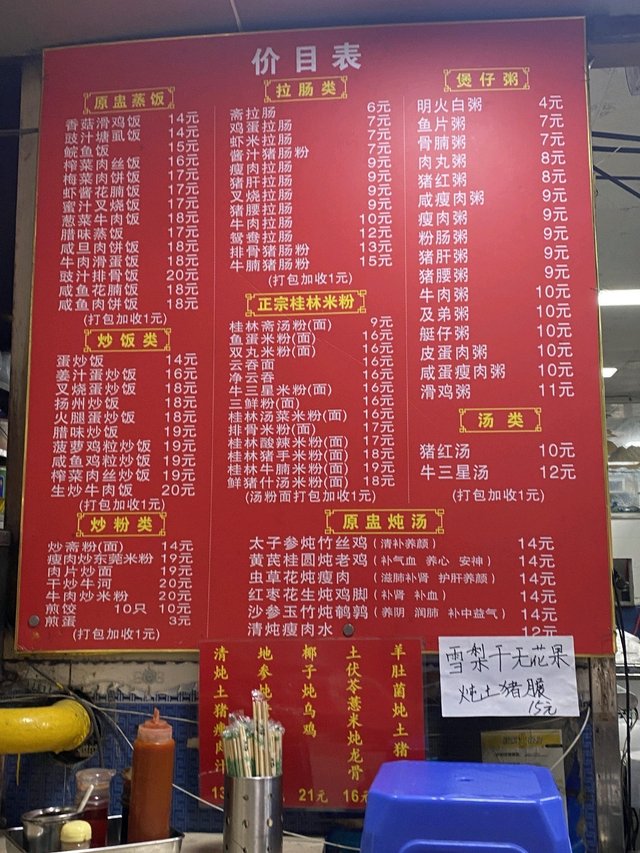 价目表
原盅蒸饭
香菇滑鸡饭 14元
豉汁塘虱饭 14元
鲩鱼饭 15元
榨菜肉丝饭 16元
梅菜肉饼饭 17元
虾酱花腩饭 17元
蜜汁叉烧饭 17元
葱菜牛肉饭 18元
腊味蒸饭 17元
咸旦肉饼饭 18元
牛肉滑蛋饭 18元
豉汁排骨饭 20元
咸鱼花腩饭 18元
咸鱼肉饼饭 18元
(打包加收1元)
炒饭类
蛋炒饭 14元
姜汁蛋炒饭 16元
叉烧蛋炒饭 18元
扬州炒饭 18元
火腿蛋炒饭 18元
腊味炒饭 19元
菠萝鸡粒炒饭 19元
咸鱼鸡粒炒饭 19元
榨菜肉丝炒饭 19元
生炒牛肉饭 20元
(打包加收1元)
炒粉类
炒斋粉(面) 14元
瘦肉炒东莞米粉 19元
肉片炒面 19元
干炒牛河 20元
牛肉炒米粉 20元
煎饺 10只 10元
煎蛋 3元
(打包加收1元)
拉肠类
斋拉肠 6元
鸡蛋拉肠 7元
虾米拉肠 7元
酱汁猪肠粉 7元
瘦肉拉肠 9元
猪肝拉肠 9元
叉烧拉肠 9元
猪腰拉肠 9元
牛肉拉肠 10元
鸳鸯拉肠 12元
排骨猪肠粉 13元
牛腩猪肠粉 15元
(打包加收1元)
正宗桂林米粉
桂林斋汤粉(面) 9元
鱼蛋米粉(面) 16元
双丸米粉(面) 16元
云吞面 16元
净云吞 16元
牛三星米粉(面) 16元
三鲜粉(面) 16元
桂林汤菜米粉(面) 16元
排骨米粉(面) 17元
桂林酸辣米粉(面) 17元
桂林猪手米粉(面) 18元
桂林牛腩米粉(面) 19元
鲜猪什汤米粉(面) 18元
(汤粉面打包加收1元)
煲仔粥
明火白粥 4元
鱼片粥 7元
骨腩粥 7元
肉丸粥 8元
猪红粥 8元
咸瘦肉粥 9元
瘦肉粥 9元
粉肠粥 9元
猪肝粥 9元
猪腰粥 9元
牛肉粥 10元
及弟粥 10元
艇仔粥 10元
皮蛋肉粥 10元
咸蛋瘦肉粥 10元
滑鸡粥 11元
汤类
猪红汤 10元
牛三星汤 12元
(打包加收1元)
原盅炖汤
太子参炖竹丝鸡(清补养颜) 14元
黄芪桂圆炖老鸡(补气血 养心 安神) 14元
虫草花炖瘦肉 (滋肺补肾 护肝养颜) 14元
红枣花生炖鸡脚(补肾 补血) 14元
沙参玉竹炖鹌鹑(养阴 润肺 补中益气) 14元
清炖瘦肉水 12元
清炖土猪瘦肉汁
地参炖
椰子炖乌鸡 21元
土伏苓薏米炖龙骨 16元
羊肚菌炖土猪
雪梨干无花果
炖土猪𦟌
15元